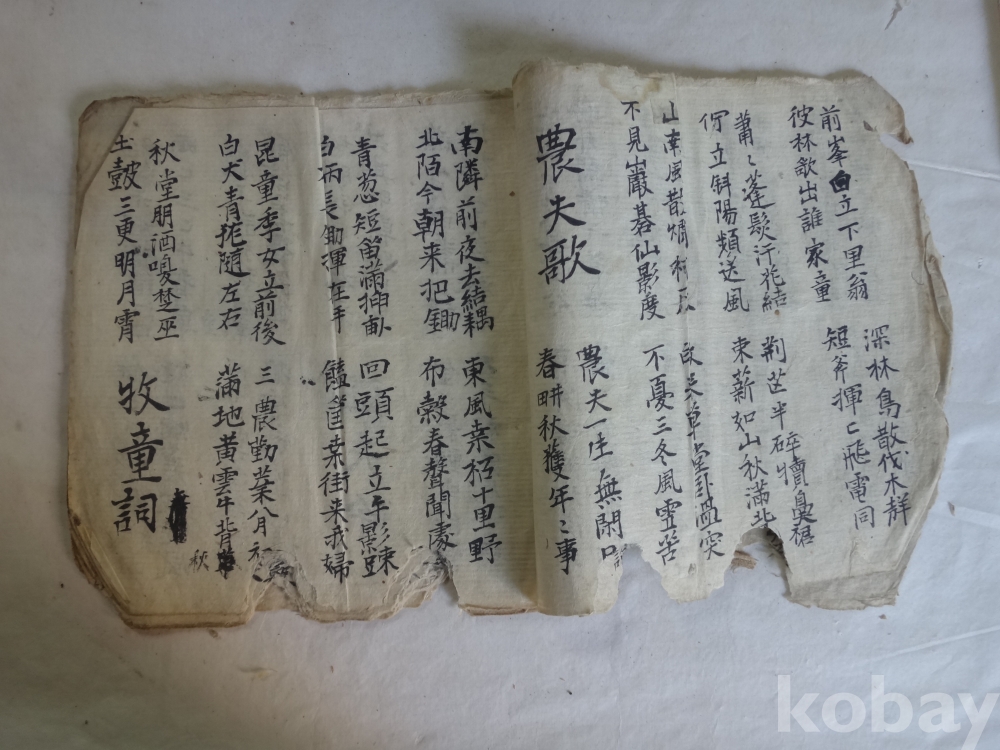 前峯白立下里翁
深林鳥散伐木群
彼林欲出誰家童
短斧揮〻飛電同
蕭〻蓬髮汗花結
荊芒半碎犢鼻裩
佇立斜陽頻送風
束薪如山秋滿北
山南風散
草堂卧溫突
不見巖碁仙影度
不憂三冬風雪苦
農夫歌
農夫一生無閑
春畊秋獲年〻事
南隣前夜去結耦
東風桑柘十里野
北陌今朝来把鋤
布穀春聲聞處
青葱短笛滿
回頭起立午影
白柄長鋤渾在手
饁筐桑街来我婦
昆童季女立前後
三農勤葉八月
白犬青尨隨左右
滿地黃雲午背
秋
秋堂朋酒嗄楚巫
土鼓三更明月宵
牧童詞
kobay